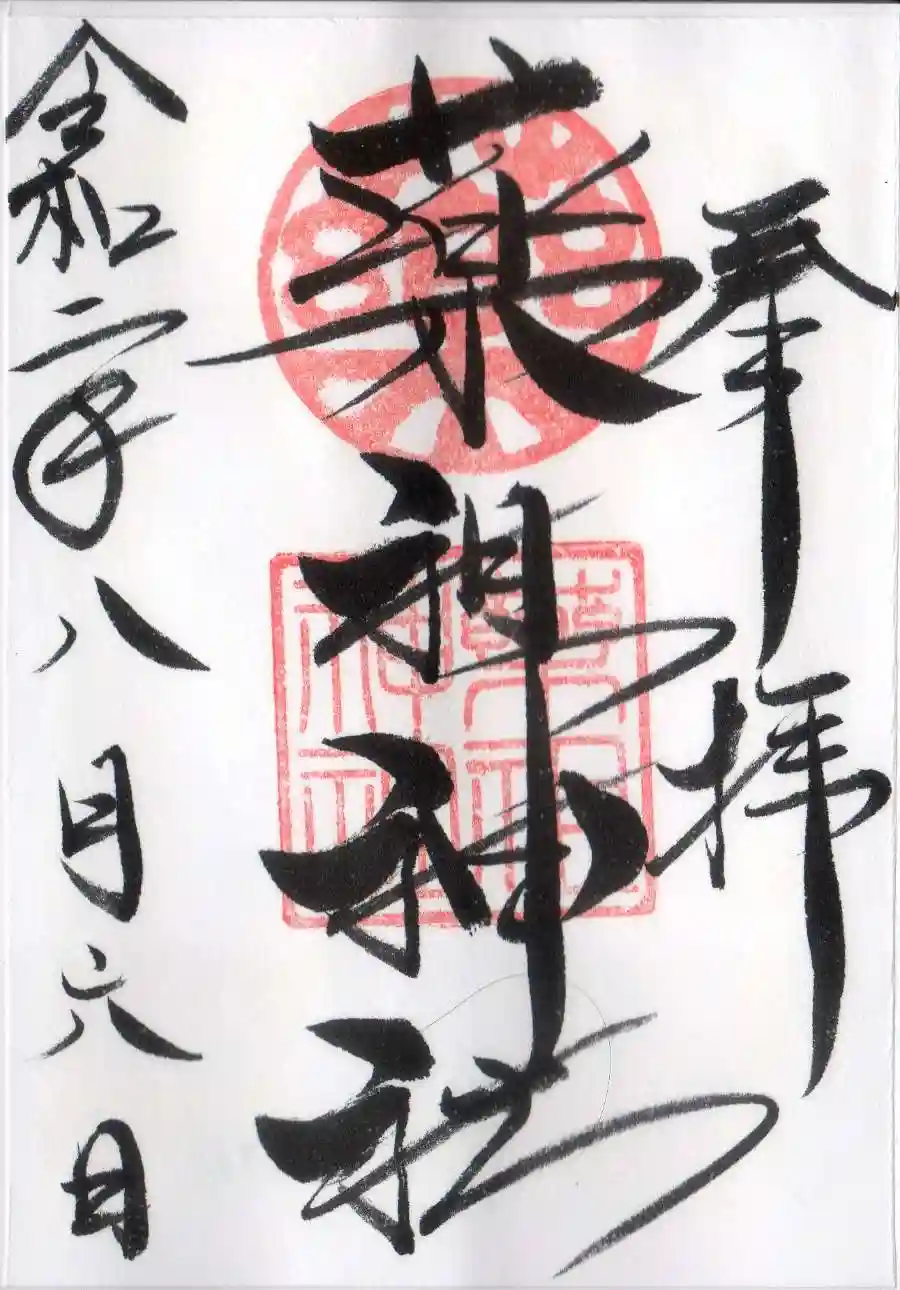 奉拝
薬祖神社
藥祖
神社
令和二年八月六日